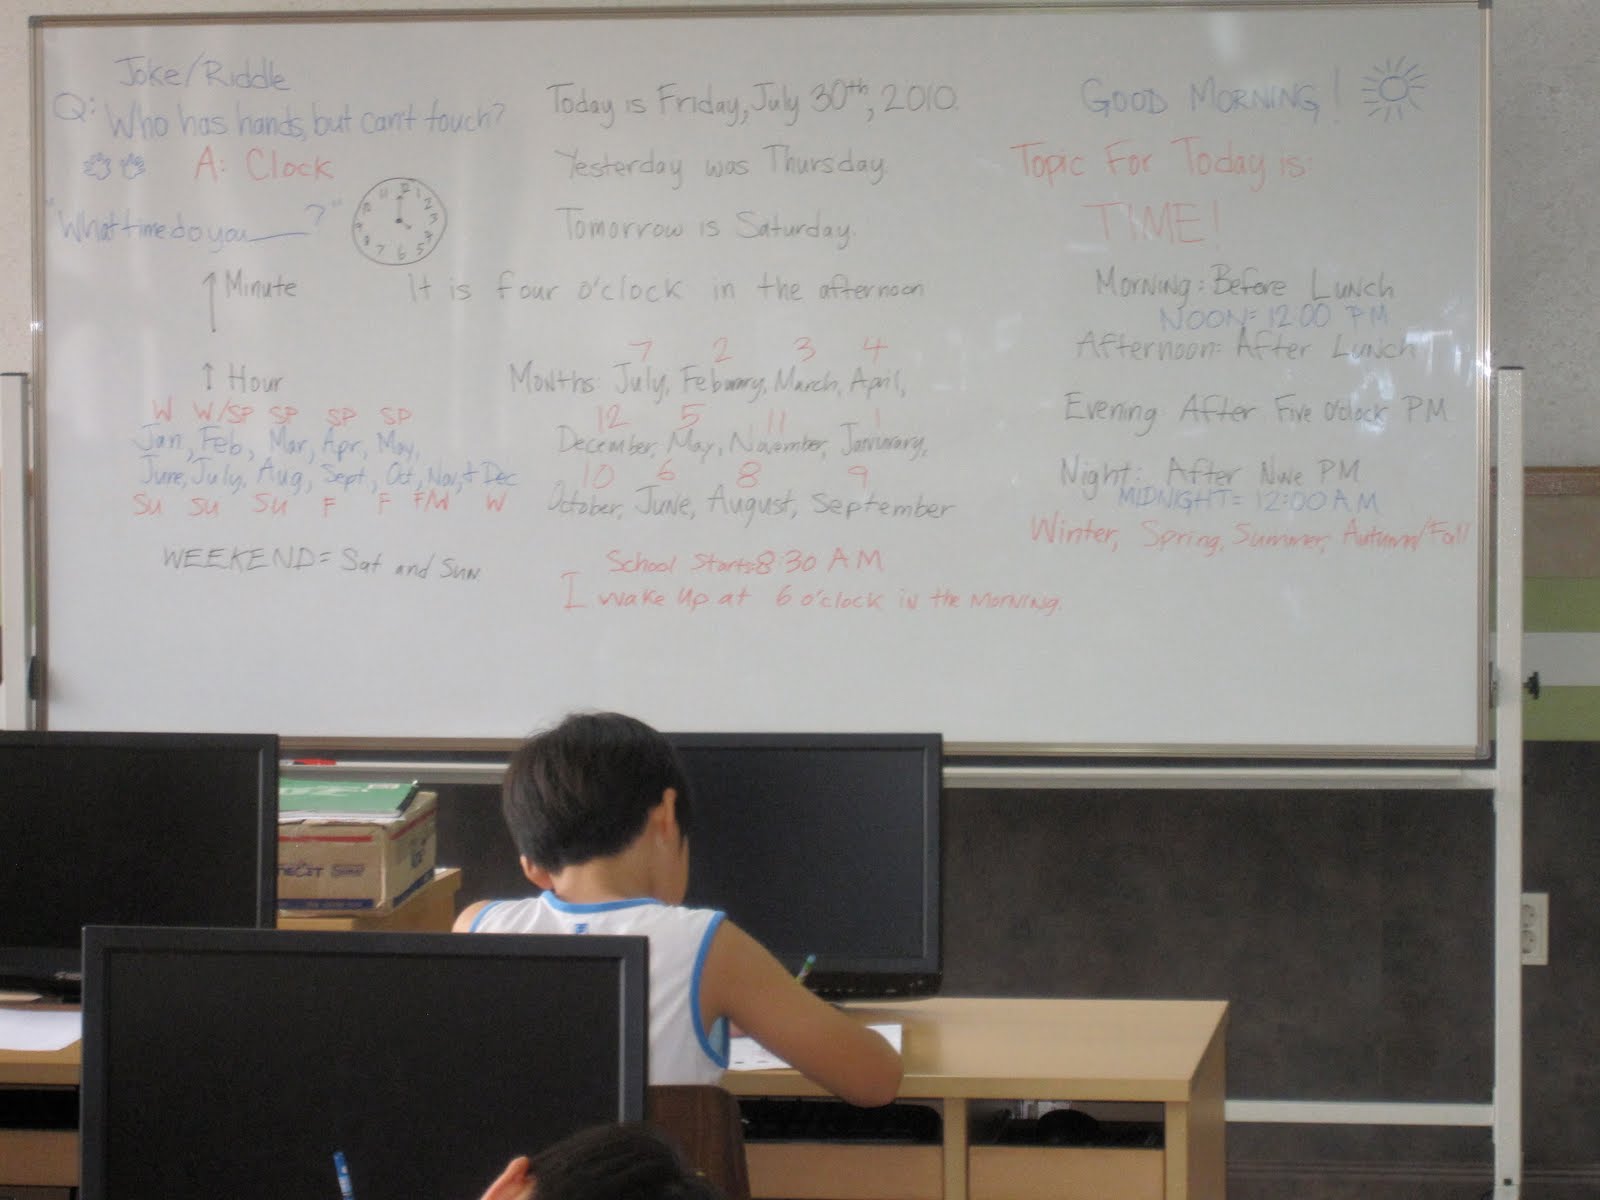 Joke/Riddle
Q: Who has hands, but can't touch?
A: Clock
"What time do you ____?"
12 1 2 3 4 5 6 7 8 9 10 11
↑ Minute
↑ Hour
W W/SP SP SP SP
Jan, Feb, Mar, Apr, May,
June, July, Aug, Sept, Oct, Nov, + Dec
SU SU SU F F F/W W
WEEKEND = Sat and Sun
Today is Friday, July 30th, 2010.
Yesterday was Thursday.
Tomorrow is Saturday.
It is four o'clock in the afternoon
7 2 3 4
Months: July, Feburary, March, April,
12 5 11 1
December, May, November, Janurary,
10 6 8 9
October, June, August, September
School Starts: 8:30 AM
I wake up at 6 o'clock in the morning.
GOOD MORNING!
Topic For Today is:
TIME!
Morning: Before Lunch
NOON = 12:00 PM
Afternoon: After Lunch
Evening After Five O'clock PM
Night: After Nine PM
MIDNIGHT = 12:00 AM
Winter, Spring, Summer, Autumn/Fall